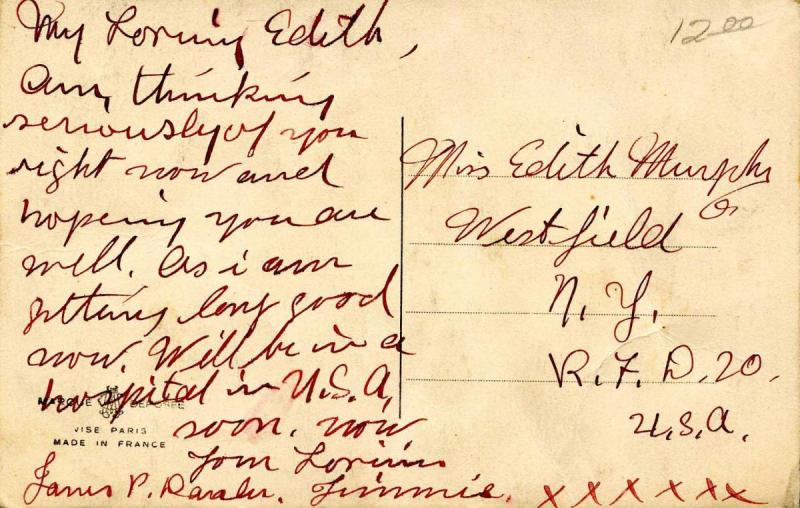 My Loving Edith,
Am, thinking
seriously of you
right now and
hopeing you are
well. As i am
getting long good
now. Will be in a
hospital in U.S.A,
soon. now
Your Loving
James P. Jimmie. x x x x x x
12.00
Miss Edith Murphy
Westfield
N. Y.
R. F. D. 20.
U.S.A.
MARQUE DÉPOSÉE
VISE PARIS
MADE IN FRANCE